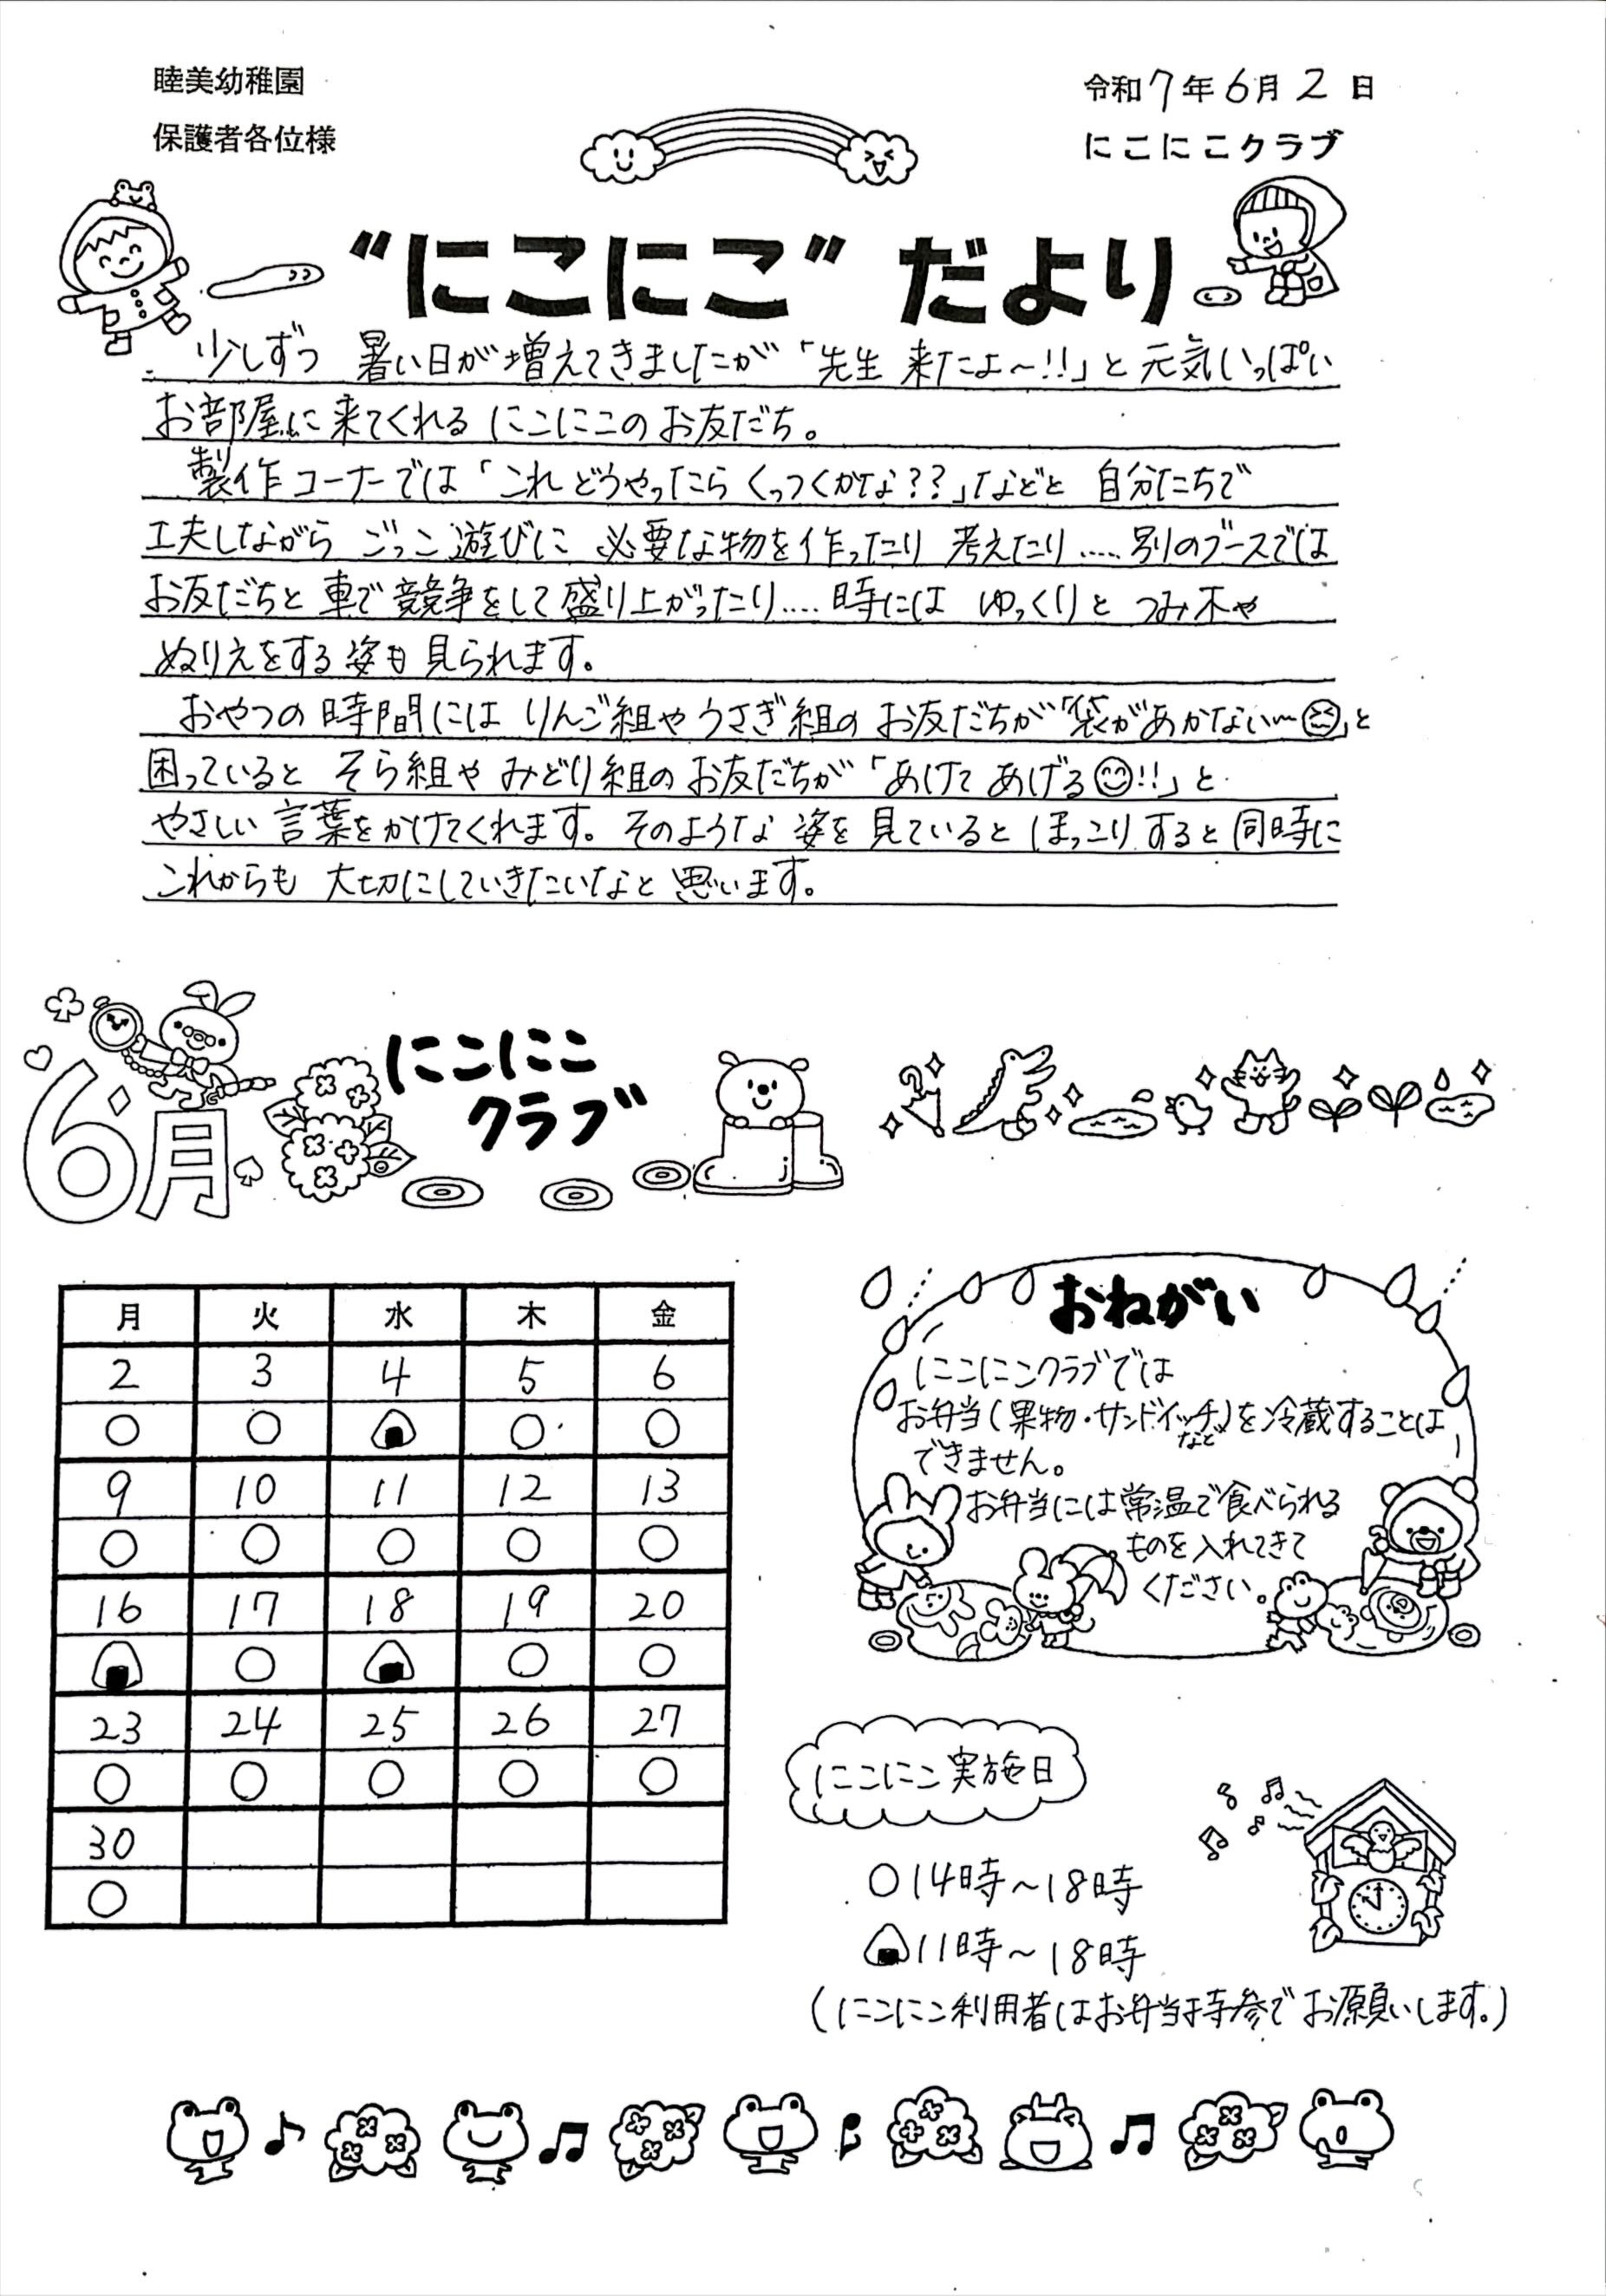 睦美幼稚園
保護者各位様
令和7年6月2日
にこにこクラブ
"にこにこ"だより
少しずつ 暑い日が増えてきましたが「先生 来たよ～!!」と元気いっぱい
お部屋に来てくれる にこにこのお友だち。
製作コーナーでは「これ どうやったら くっつくかな??」などと 自分たちで
工夫しながら ごっこ遊びに 必要な物を作ったり 考えたり……別のブースでは
お友だちと 車で競争をして盛り上がったり….時には ゆっくりと つみ木や
ぬりえをする姿も見られます。
おやつの時間には りんご組やうさぎ組のお友だちが「袋があかない～」と
困っていると そら組や みどり組のお友だちが「あけて あげる!!」と
やさしい言葉をかけてくれます。そのような姿を見ていると ほっこりすると同時に
これからも 大切にしていきたいなと思います。
6月
にこにこ
クラブ
月 火 水 木 金
2 3 4 5 6
○ ○ 🍙 ○ ○
9 10 11 12 13
○ ○ ○ ○ ○
16 17 18 19 20
🍙 ○ 🍙 ○ ○
23 24 25 26 27
○ ○ ○ ○ ○
30
○
おねがい
にこにこクラブでは
お弁当(果物・サンドイッチなど)を冷蔵することは
できません。
お弁当には常温で食べられる
ものを入れてきて
ください。
にこにこ実施日
○14時～18時
🍙11時～18時
(にこにこ利用者はお弁当持参でお願いします。)